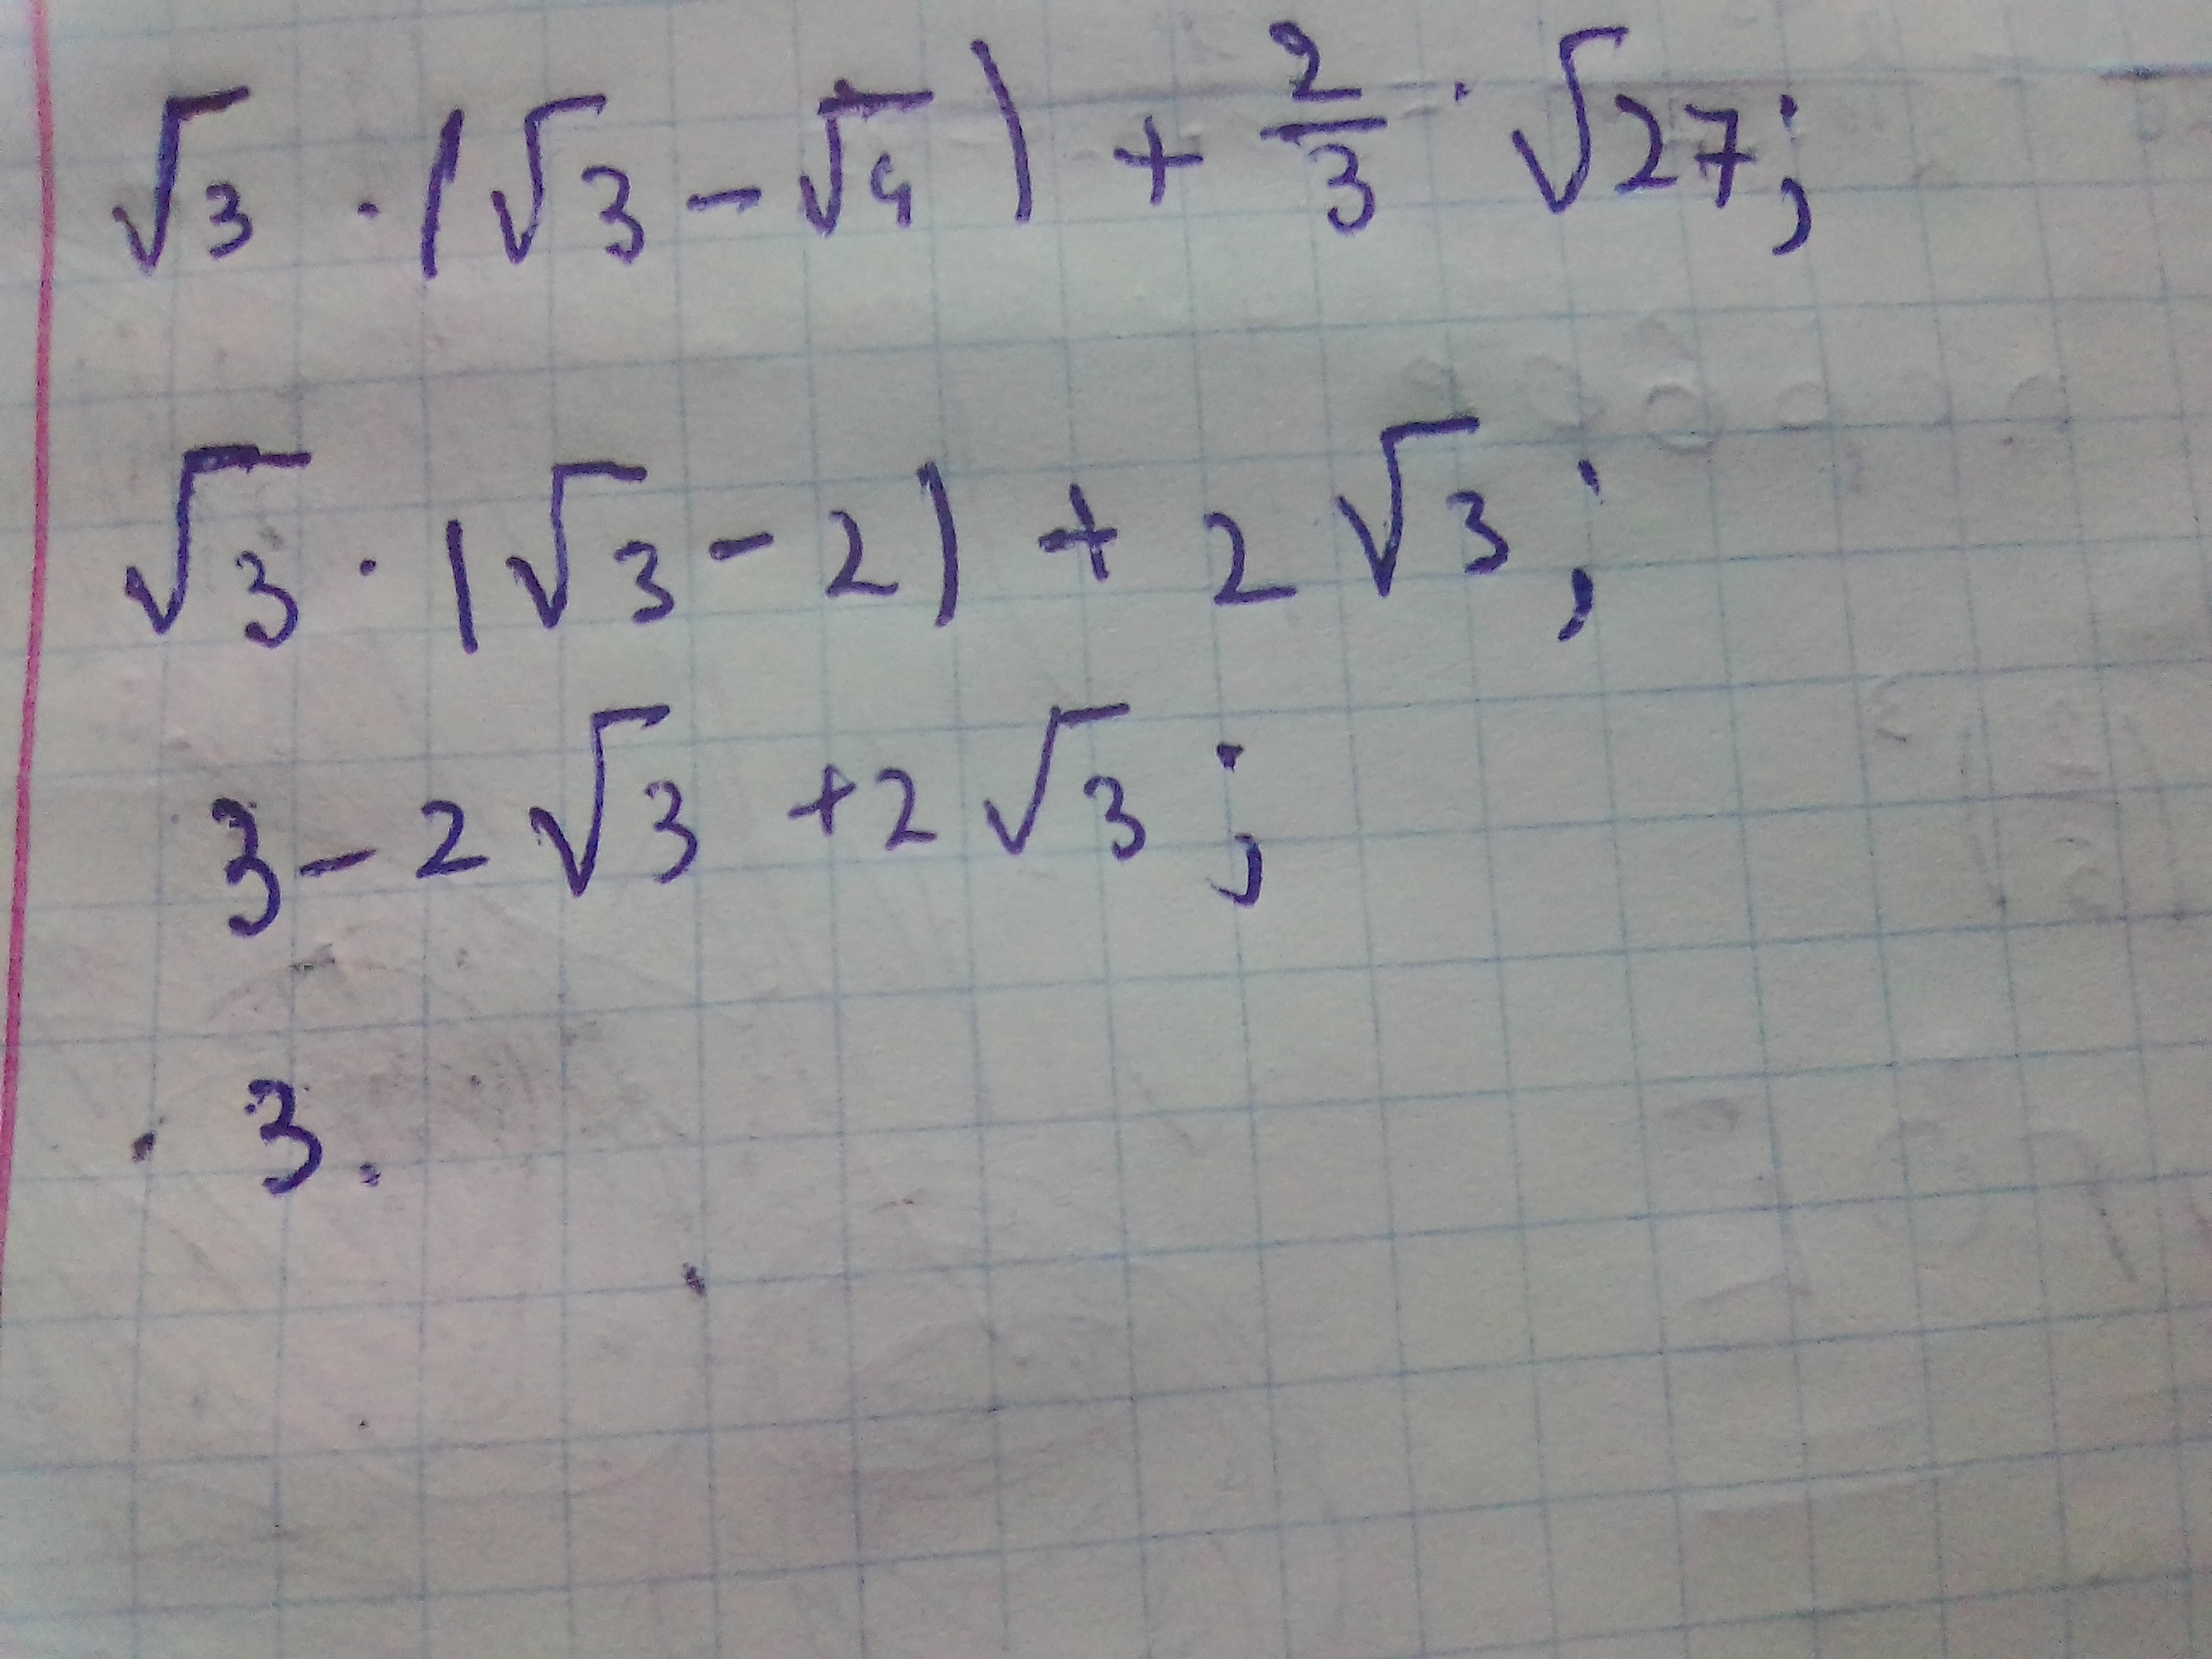 √3 · (√3 - √4) + 2/3 · √27;
√3 · (√3 - 2) + 2√3;
3 - 2√3 + 2√3;
3.